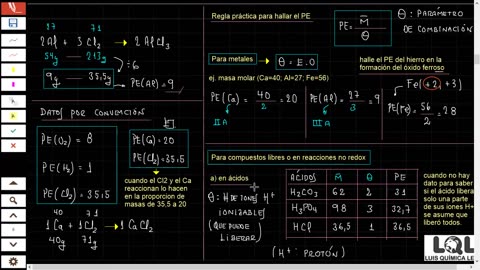 27 71
2Al + 3Cl₂ → 2AlCl₃
54g — 213g
÷6
9g — 35,5g
PE(Al) = 9
DATOS POR CONVENCIÓN
PE(O₂) = 8
PE(H₂) = 1
PE(Cl₂) = 35,5
PE(Ca) = 20
PE(Cl₂) = 35,5
cuando el Cl2 y el Ca
reaccionan lo hacen
en la proporcion de
masas de 35,5 a 20
40 71
1Ca + 1Cl₂ → 1CaCl₂
40g 71g
Regla práctica para hallar el PE
PE = M̄ / θ
θ: PARÁMETRO
DE COMBINACIÓN
Para metales
θ = E.O
halle el PE del hierro en la
formación del óxido ferroso
ej. masa molar (Ca=40; Al=27; Fe=56)
Fe (+2, +3)
PE(Ca) = 40/2 = 20
IIA
PE(Al) = 27/3 = 9
IIIA
PE(Fe) = 56/2 = 28
Para compuestos libres o en reacciones no redox
a) en ácidos
θ: # DE IONES H⁺
IONIZABLES
(QUE PUEDE
LIBERAR)
ÁCIDOS M̄ θ PE
H₂CO₃ 62 2 31
H₃PO₄ 98 3 32,7
HCl 36,5 1 36,5
(H⁺: PROTÓN)
cuando no hay
dato para saber
si el ácido libera
solo una parte
de sus iones H+
se asume que
liberó todos.
LQL
LUIS QUÍMICA LE